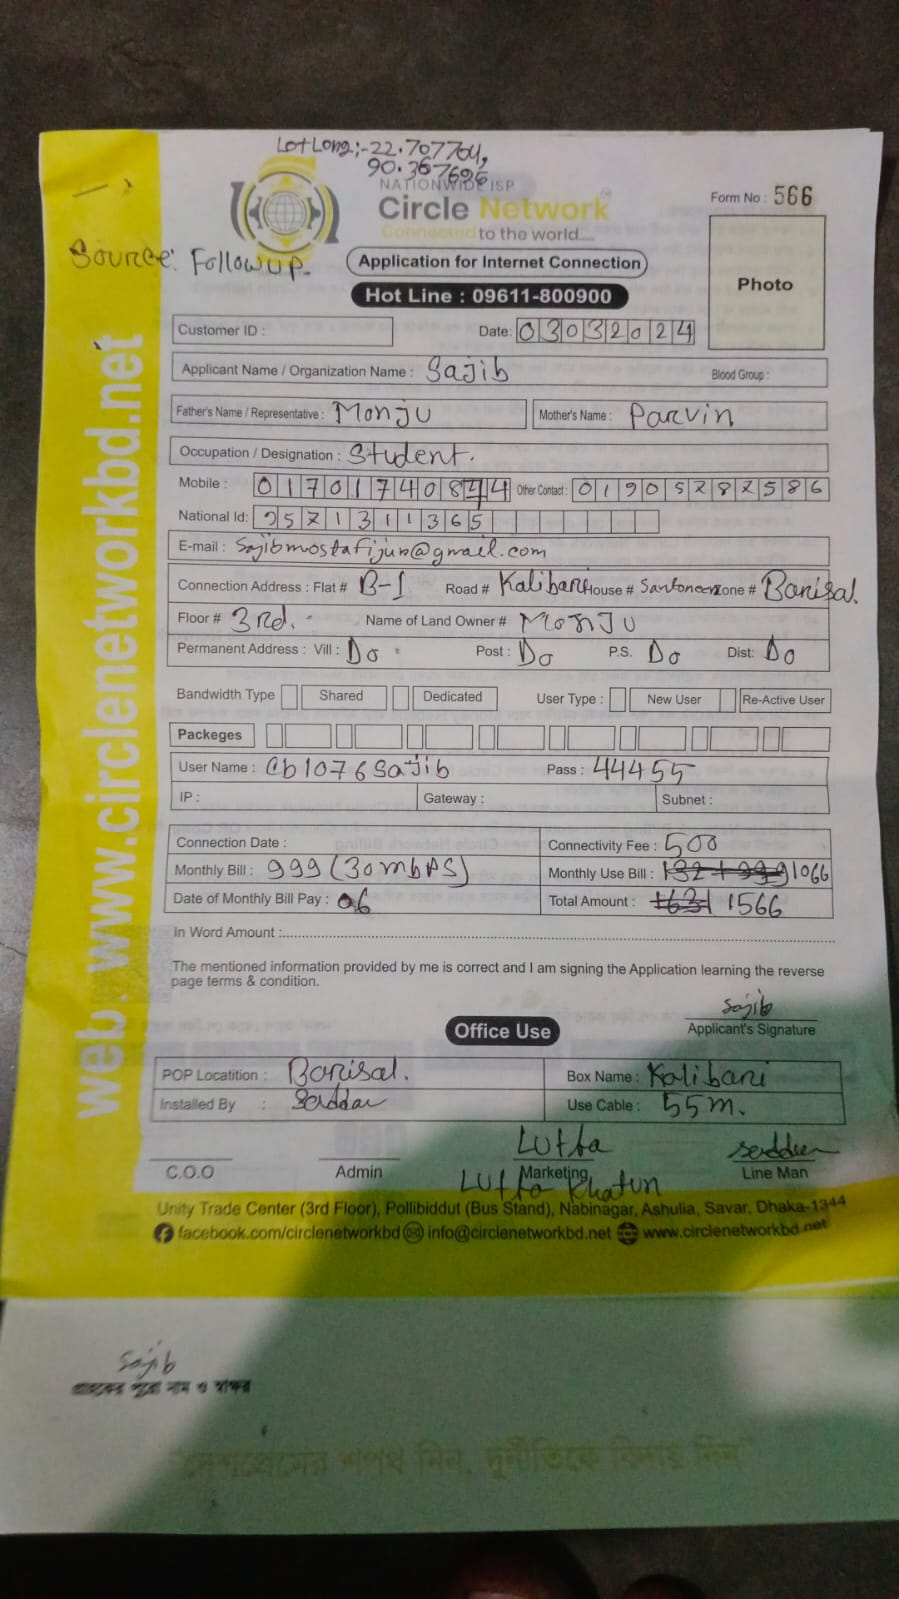 Lot Long:-22.707704,
90.367696
NATIONWIDE ISP
Circle Network
Connected to the world.....
Form No : 566
Source: Followup-
Application for Internet Connection
Photo
Hot Line : 09611-800900
Customer ID :
Date: 03032024
Applicant Name / Organization Name : Sajib Blood Group :
Father's Name / Representative : Monju Mother's Name : Parvin
Occupation / Designation : Student.
Mobile : 01701740844 Other Contact : 01905282586
National Id: 9571311365
E-mail : Sajibmostafijur@gmail.com
Connection Address : Flat # B-1 Road # Kalibari House # Zone # Barisal.
Floor # 3rd. Name of Land Owner # Monju
Permanent Address : Vill : Do Post : Do P.S. Do Dist: Do
Bandwidth Type Shared Dedicated User Type : New User Re-Active User
Packeges
User Name : Cb1076Sajib Pass : 44455
IP : Gateway : Subnet :
Connection Date : Connectivity Fee : 500
Monthly Bill : 999 (30mbps) Monthly Use Bill : 132 + 999 1066
Date of Monthly Bill Pay : 06 Total Amount : 1631 1566
In Word Amount :
The mentioned information provided by me is correct and I am signing the Application learning the reverse
page terms & condition.
Sajib
Applicant's Signature
Office Use
POP Locatition : Barisal. Box Name : Kalibari
Installed By : Use Cable : 55m.
Lutfa
C.O.O Admin Marketing Line Man
Lutfa Khatun
Unity Trade Center (3rd Floor), Pollibiddut (Bus Stand), Nabinagar, Ashulia, Savar, Dhaka-1344
facebook.com/circlenetworkbd info@circlenetworkbd.net www.circlenetworkbd.net
web : www.circlenetworkbd.net
Sajib
গ্রাহকের পুরো নাম ও স্বাক্ষর
"দেশপ্রেমের শপথ নিন, দুর্নীতিকে বিদায় দিন"